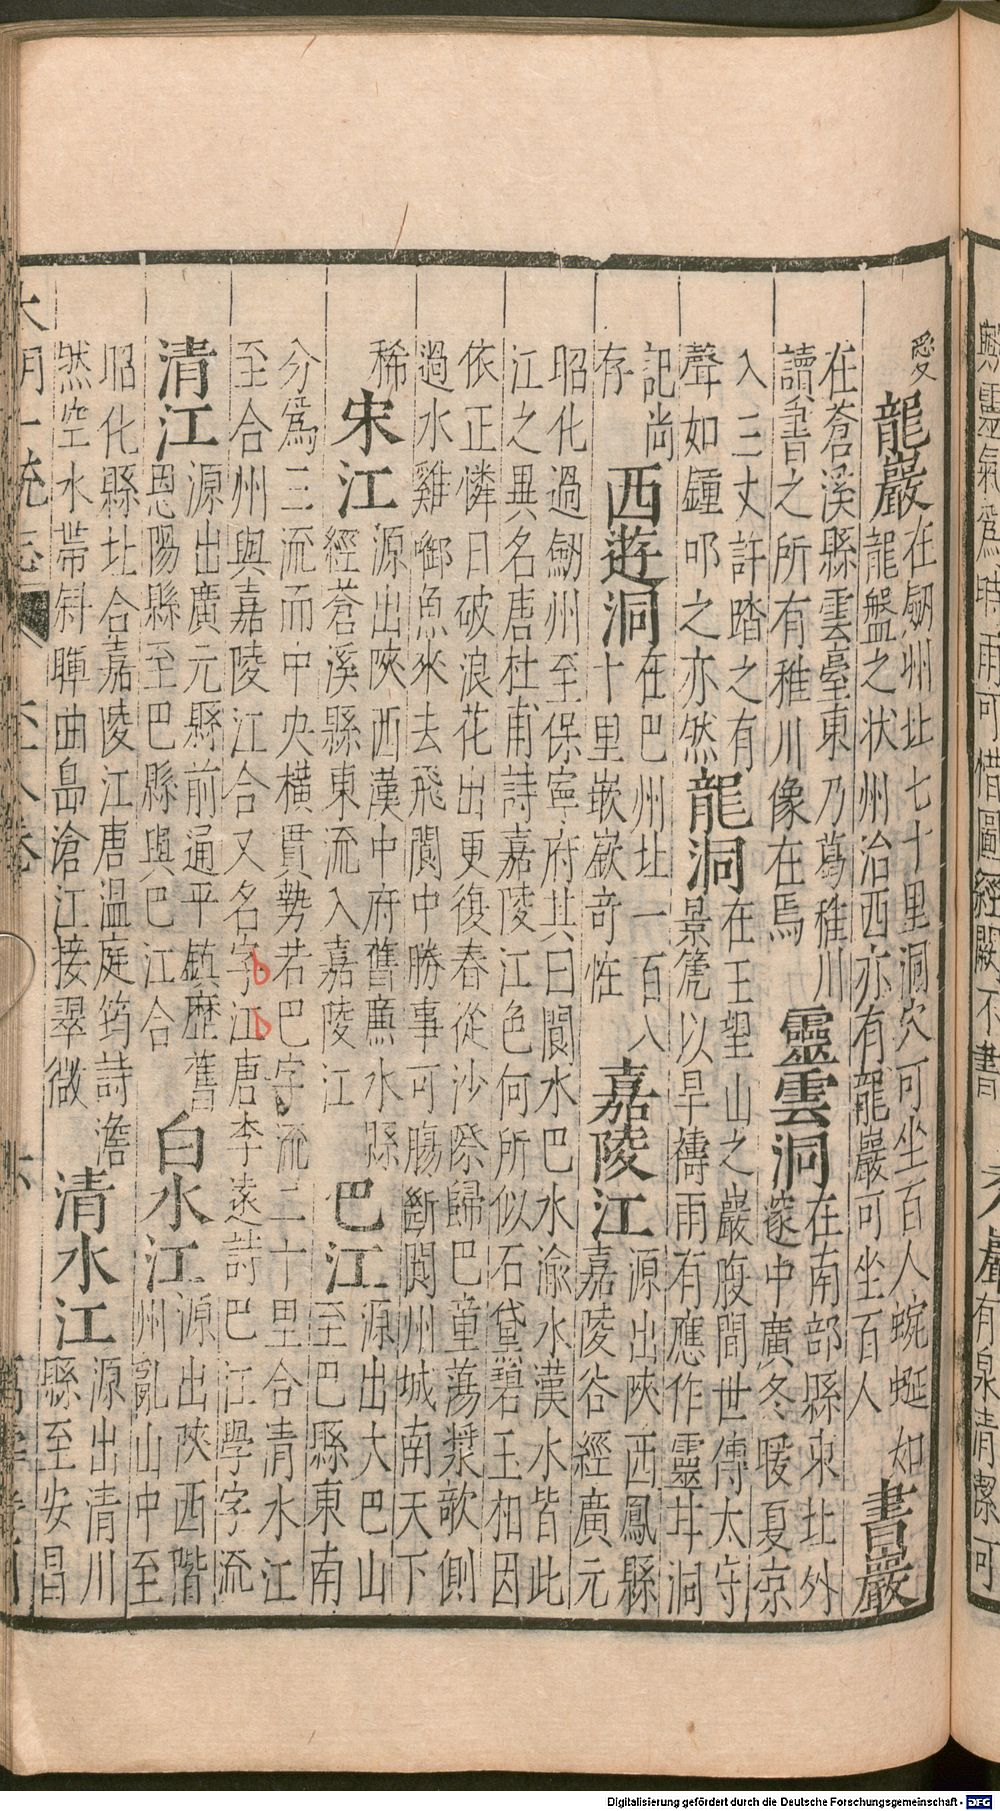 靈氣爲時雨可惜圖經闕不書
巖
有泉清潔可
愛
龍巖
在劒州北七十里洞穴可坐百人蜿蜒如
龍盤之狀州治西亦有龍巖可坐百人
書巖
在蒼溪縣雲臺東乃葛稚川
讀書之所有稚川像在焉
靈雲洞
在南部縣東北外
邃中廣冬暖夏凉
入三丈許踏之有
聲如鐘叩之亦然
龍洞
在玉望山之巖腹間世傳太守
景篪以旱禱雨有應作靈井洞
記尚
存
西遊洞
在巴州北一百八
十里嵌嶔奇恠
嘉陵江
源出陜西鳳縣
嘉陵谷經廣元
昭化過劒州至保寧府其曰閬水巴水渝水漢水皆此
江之異名唐杜甫詩嘉陵江色何所似石黛碧玉相因
依正憐日破浪花出更復春從沙際歸巴童蕩槳欹側
過水雞啣魚來去飛閬中勝事可腸斷閬州城南天下
稀
宋江
源出陜西漢中府舊廉水縣
經蒼溪縣東流入嘉陵江
巴江
源出大巴山
至巴縣東南
分爲三流而中央橫貫勢若巴字流二十里合清水江
至合州與嘉陵江合又名字江唐李遠詩巴江學字流
清江
源出廣元縣前通平鎮歷舊
恩陽縣至巴縣與巴江合
白水江
源出陜西階
州亂山中至
昭化縣北合嘉陵江唐溫庭筠詩澹
然空水帶斜暉曲島滄江接翠微
清水江
源出清川
縣至安昌
大明一統志
Digitalisierung gefördert durch die Deutsche Forschungsgemeinschaft - DFG